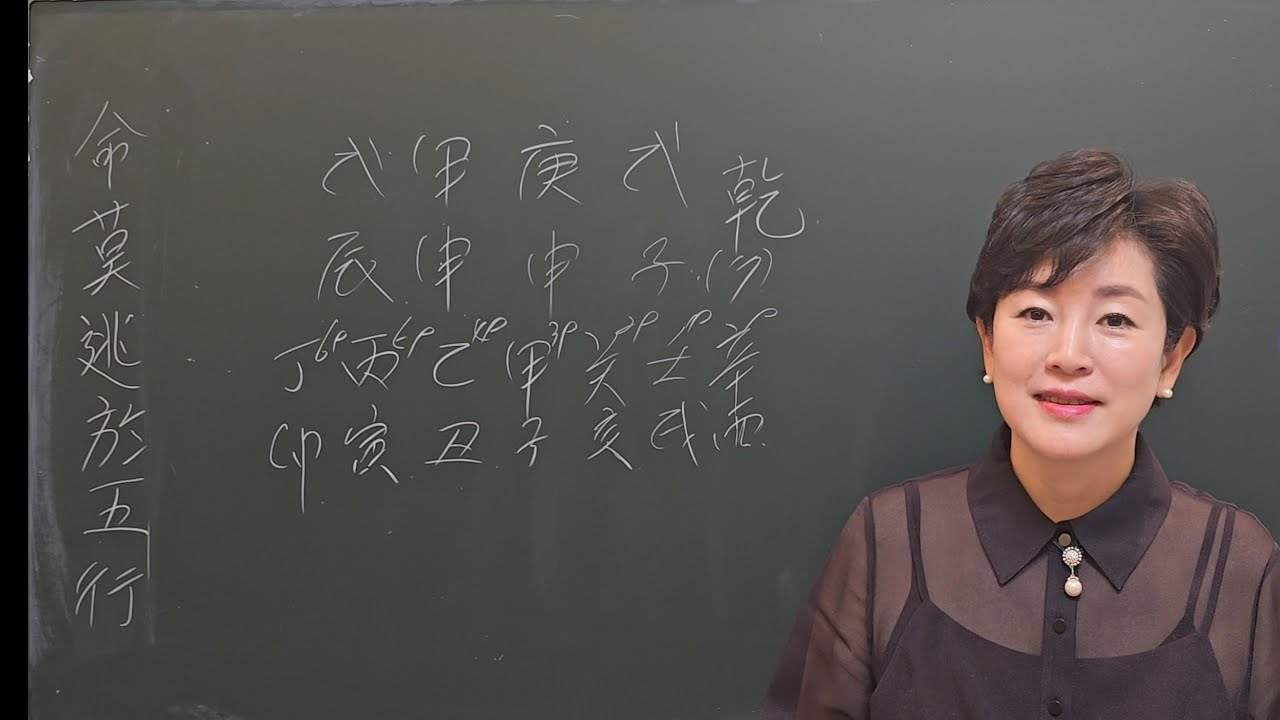 命莫逃於五行
戊甲庚戊 乾
辰申申子
丁丙乙甲癸壬辛
卯寅丑子亥戌酉